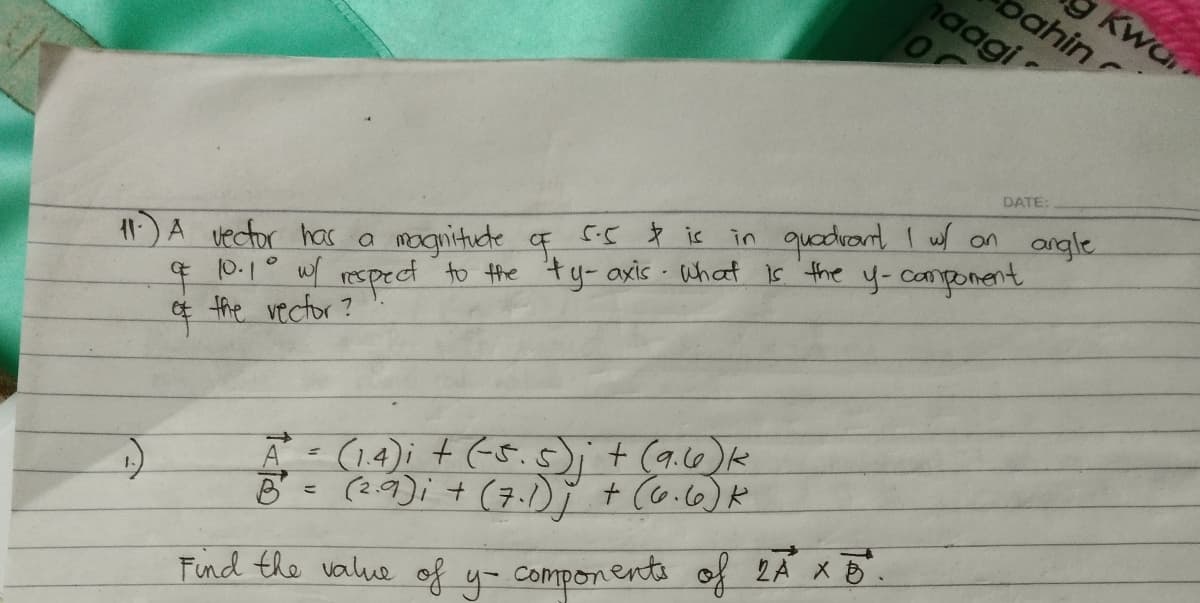 g Kwa
bahin
aagi
DATE:
11.) A vector has a magnitude of 5.5 & is in quadrant 1 w/ an angle
of 10.1° w/ respect to the +y-axis. What is the y-component
of the vector?
1.) A⃗ = (1.4)i + (-5.5)j + (9.6)k
B⃗ = (2.9)i + (7.1)j + (6.6)k
Find the value of y-components of 2A⃗ x B⃗.